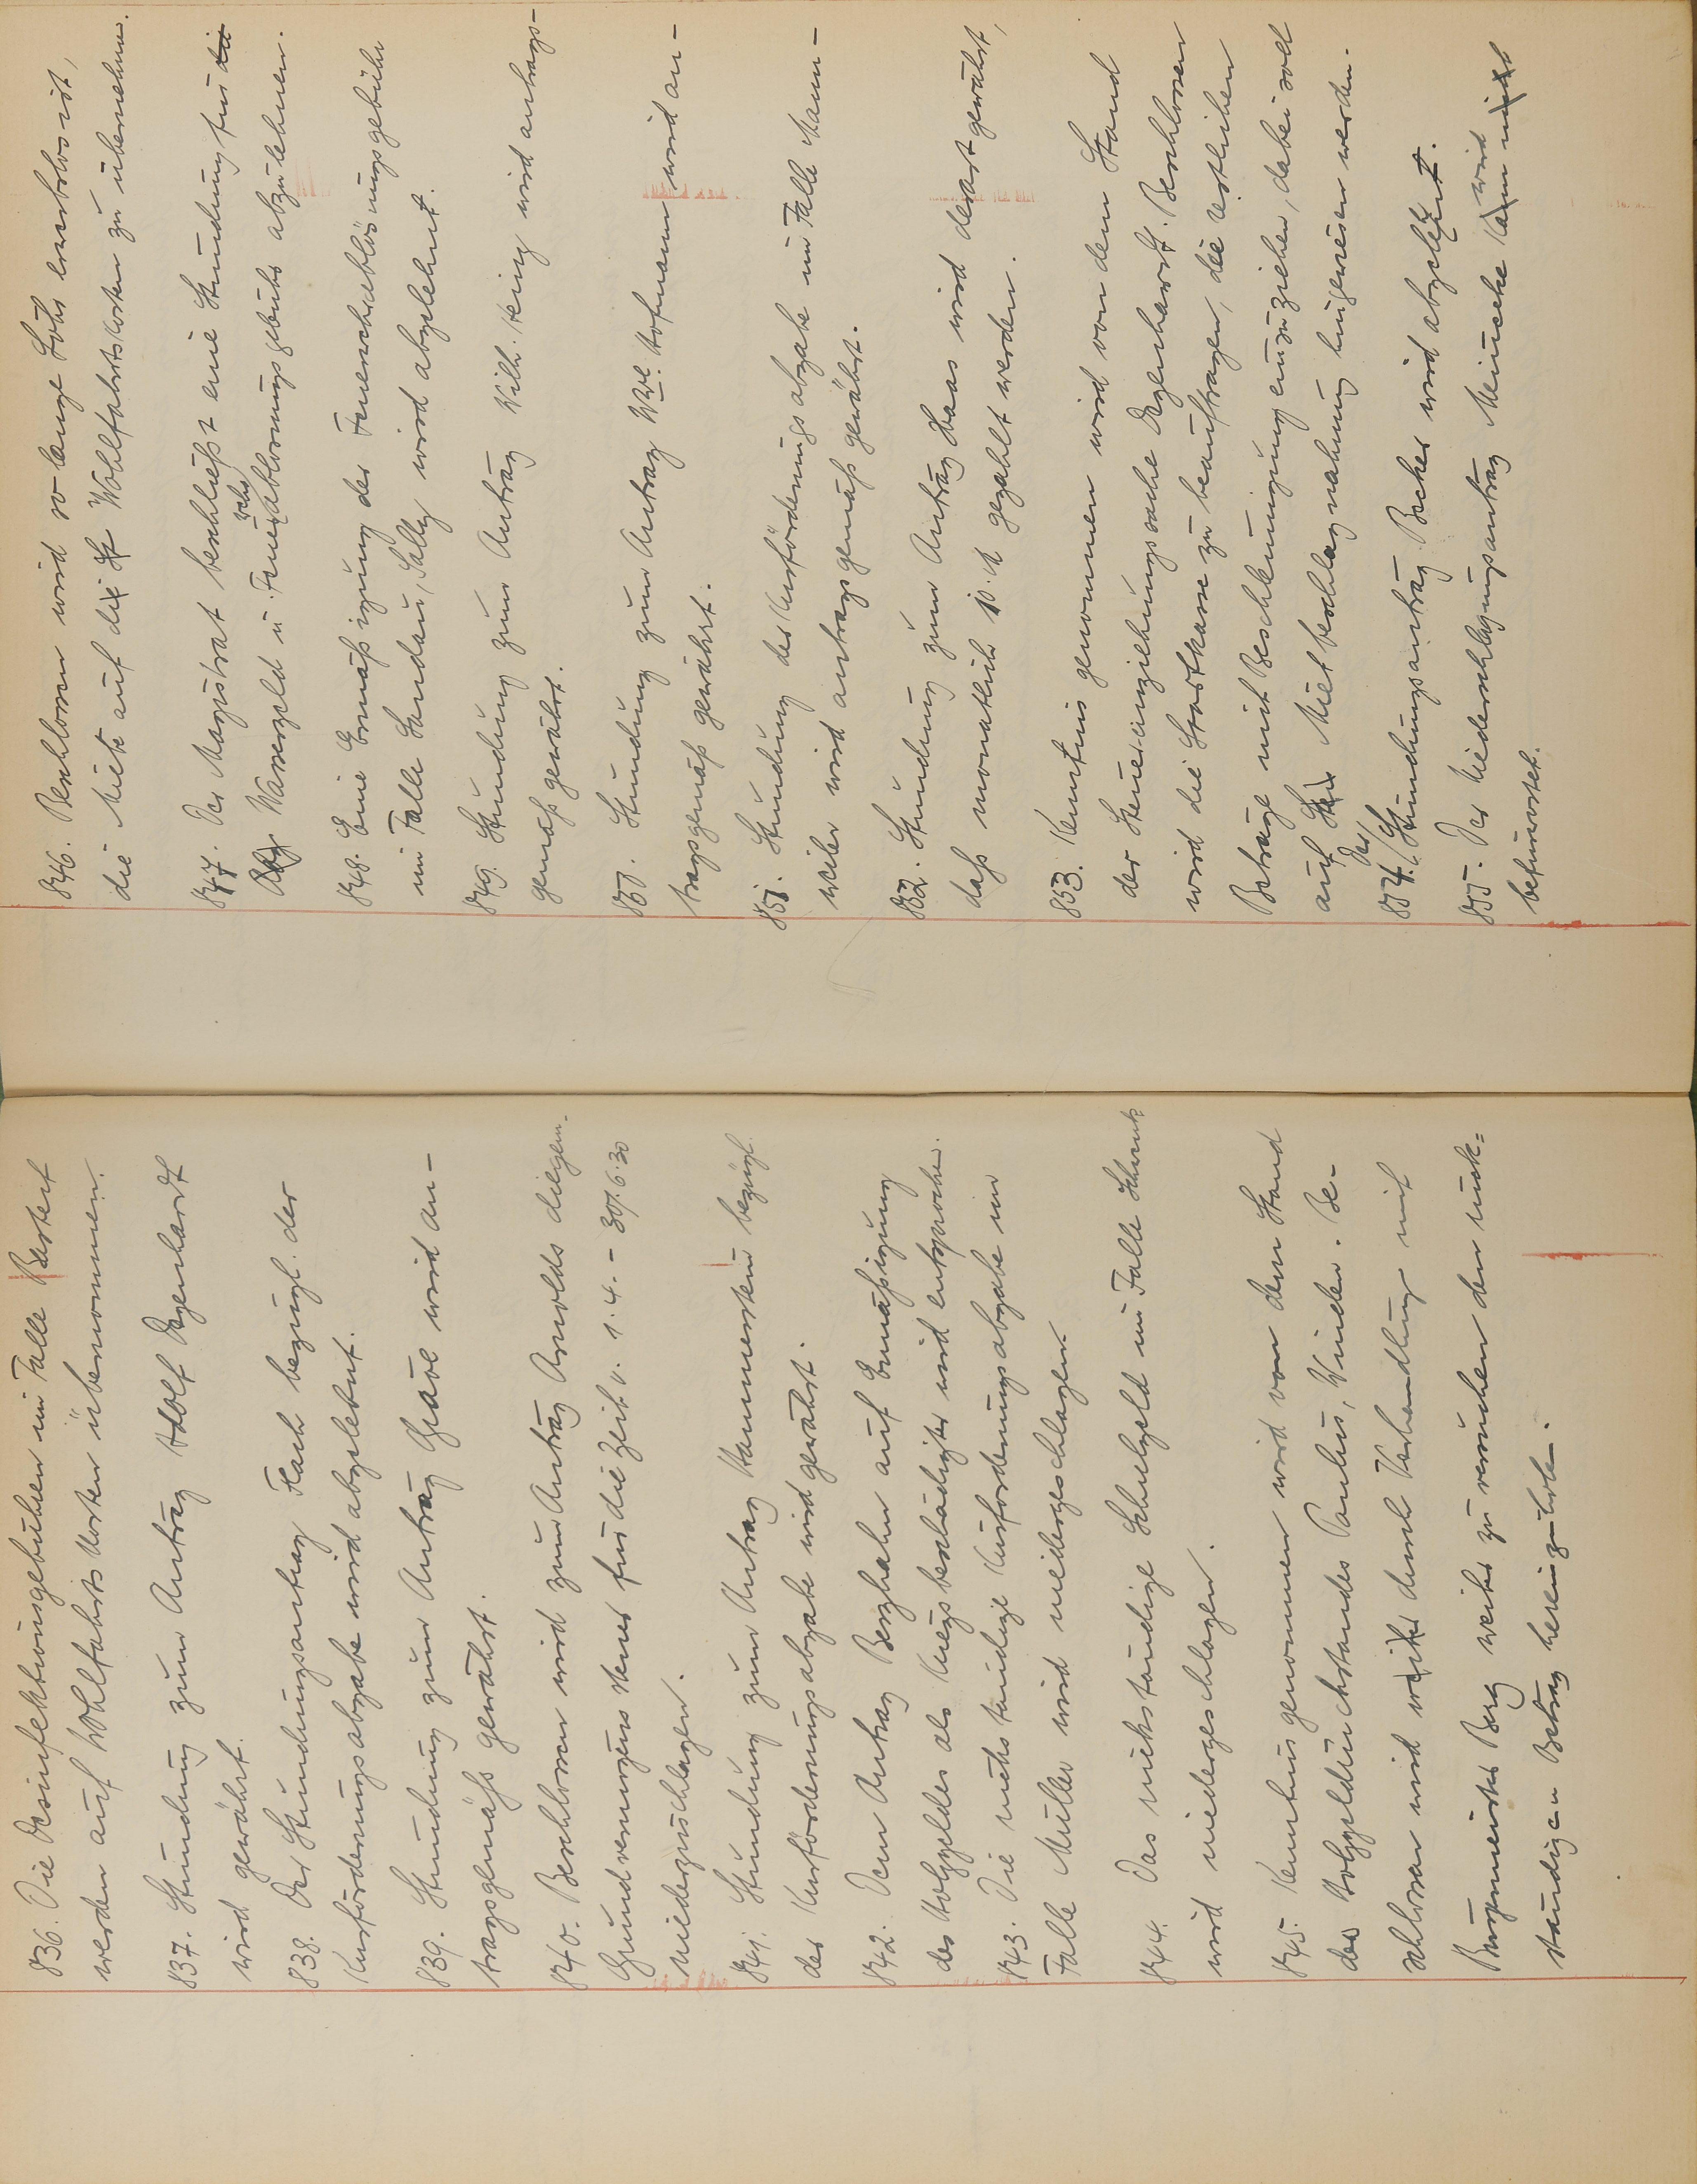 836. Die Desinfektionsgebühren im Falle Bastert
werden auf Wohlfahrtskosten übernommen.
837. Stundung zum Antrag Adolf Degenhardt
wird gewährt.
838. Der Stundungsantrag Flach bezügl. der
Kurförderungsabgabe wird abgelehnt.
839. Stundung zum Antrag Gräve wird an-
tragsgemäß gewährt.
840. Beschlossen wird zum Antrag Arnolds die gem.
Grundvermögenssteuer für die Zeit v. 1.4. - 30.6.30
niederzuschlagen.
841. Stundung zum Antrag Hammerstein bezügl.
der Kurförderungsabgabe wird gewährt.
842. Dem Antrag Berghahn auf Ermäßigung
des Holzgeldes als Kriegsbeschädigter wird entsprochen.
843. Die rückständige Kurförderungsabgabe im
Falle Müller wird niedergeschlagen.
844. Das rückständige Schulgeld im Falle
wird niedergeschlagen.
845. Kenntnis genommen wird von dem Stand
des Holzgeldrückstandes Paulus, Winden. Be-
schlossen wird weiter durch Verhandlung mit
Bürgermeister Berg weiter zu versuchen den rück=
ständigen Betrag hereinzuholen.
846. Beschlossen wird so lange Löhr erwerbslos ist,
die Miete auf die Wohlfahrtskosten zu übernehmen.
847. Der Magistrat beschließt eine Stundung für die
Wassergeld u. Feuerwehrablösungsgebühr abzulehnen.
848. Eine Ermäßigung der Feuerwehrablösungsgebühr
im Falle Landau, Sally wird abgelehnt.
849. Stundung zum Antrag Wilh. Heing wird antrags-
gemäß gewährt.
850. Stundung zum Antrag Wwe. Hofmann wird an-
tragsgemäß gewährt.
851. Stundung der Kurförderungsabgabe im Falle Mann-
weiler wird antragsgemäß gewährt.
852. Stundung zum Antrag Haas wird derart gewährt,
daß monatlich 10. M gezahlt werden.
853. Kenntnis genommen wird von dem Stand
der Steuereinziehungssache Degenhardt. Beschlossen
wird die Stadtkasse zu beauftragen, die restlichen
Beträge mit Beschleunigung einzuziehen, dabei soll
auf Mietbeschlagnahmung hingewiesen werden.
854. Der Stundungsantrag Becker wird abgelehnt.
855. Der Niederschlagungsantrag Mincke kann nicht wird
befürwortet.